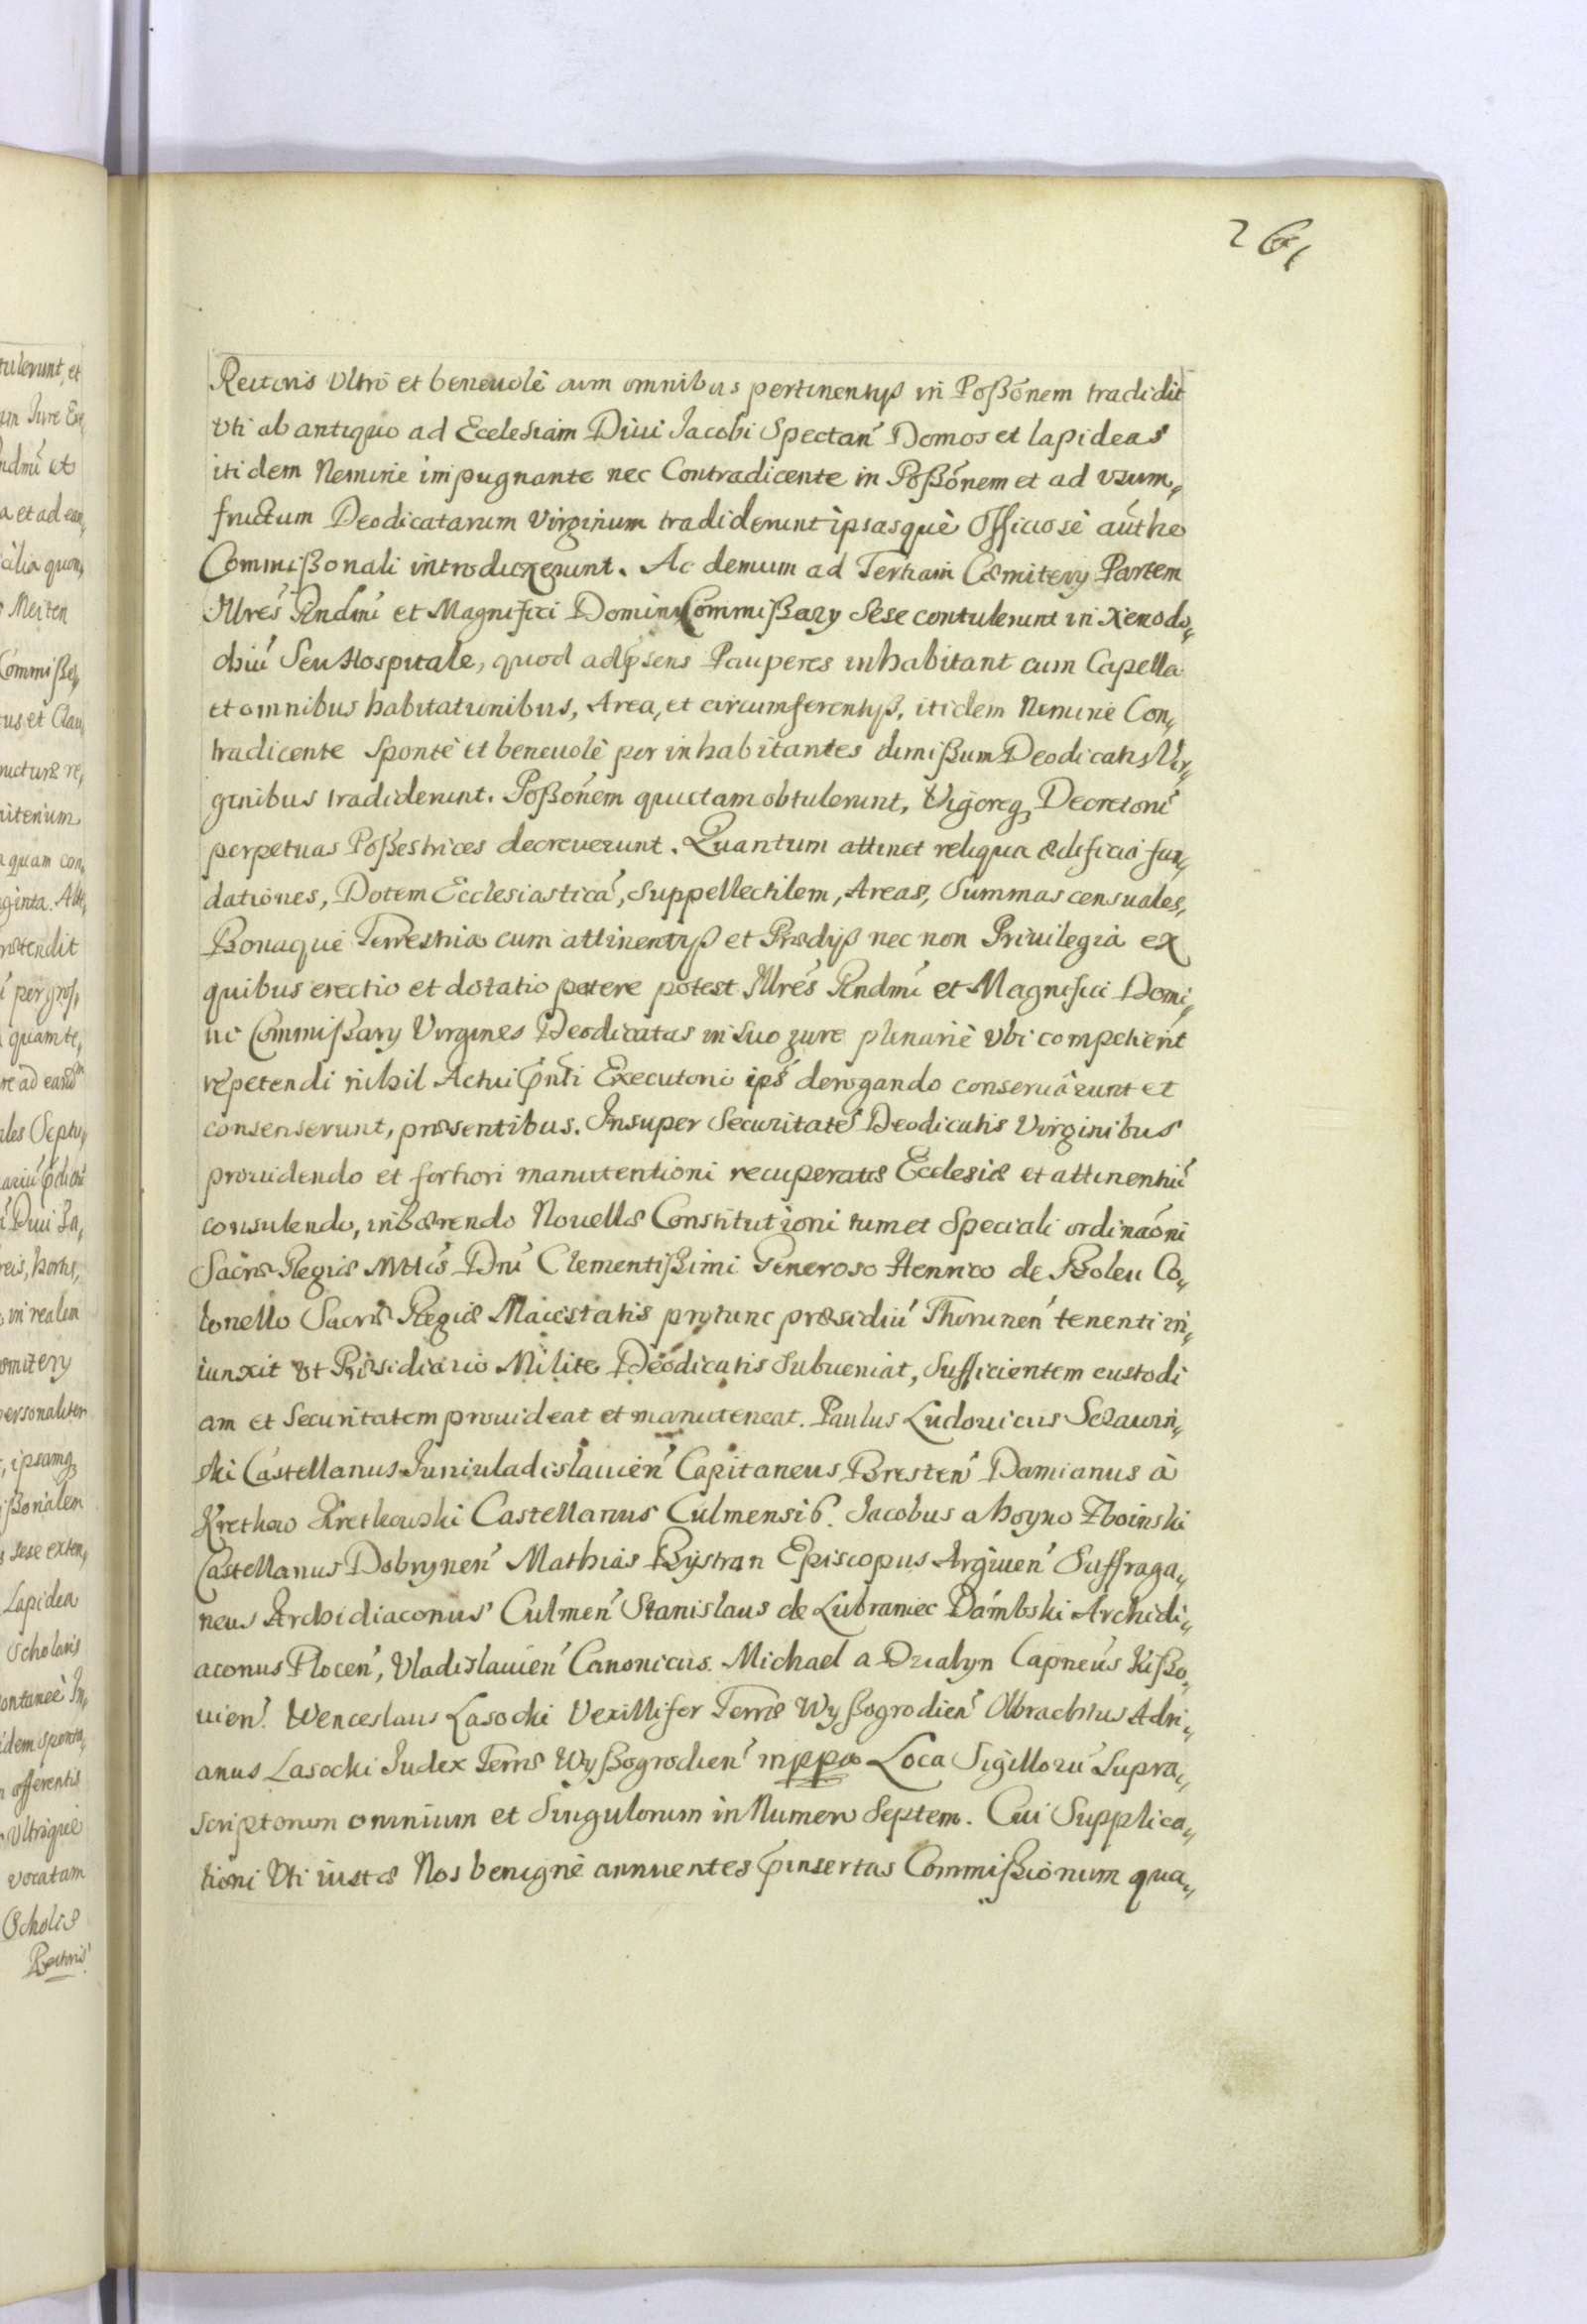 261
tulerunt, et
um Iure Exe
ndmi et
a et ad ean„
cilia quon„
Meiten
Commißa„
tus et Clau„
ructuræ re„
niterium
a quam con„
aginta. Alte„
rætendit
per gros„
quamte„
re ad eandm
ales Septu„
Diui Ia„
reis, hortis,
in realem
æmitery
personaliter
, ipsamq
ißonalem
s sese exten„
Lapidea
Scholaris
ontaneè In„
idem sponta„
n offerentis
Vltrique
vocatam
Scholis
Rectoris
Rectoris Vltrò et beneuolè cum omnibus pertinentyß in Poßonem tradidit
Vti ab antiquo ad Ecclesiam Diui Iacobi Spectan Domos et lapideas
itidem Nemine impugnante nec Contradicente in Poßonem et ad vsum„
fructum Deodicatarum Virginum tradiderunt ipsasquè Officiosè authe
Commißonali introduxerunt. Ac demum ad Tertiam Cæmitery Partem
Illres Rndmi et Magnifici Domini Commißary Sese contulerunt in Xenodo„
chiu Seu Hospitale, quod adpsens Pauperes inhabitant cum Capella
et omnibus habitationibus, Area, et circumferentyß, itidem Nemine Con„
tradicente Spontè et beneuolè per inhabitantes dimißum Deodicatis Vir„
ginibus tradiderunt. Poßonem quietam obtulerunt, Vigoreq Decretoru
perpetuas Poßestrices decreuerunt. Quantum attinet reliqua ædificia fun„
dationes, Dotem Ecclesiastica, Suppellectilem, Areas, Summas censuales,
Bonaque Terrestria cum attinentyß et Prædyß nec non Priuilegia ex
quibus erectio et dotatio patere potest Illres Rndmi et Magnifici Domi„
ni Commißary Virgines Deodicatas in Suo jure plenariè vbi competient
repetendi nihil Actui pnti Executorio ips derogando conseruârunt et
consenserunt, præsentibus. Insuper Securitate Deodicatis Virginibus
prouidendo et fortiori manutentioni recuperatæ Ecclesiæ et attinentiu
consulendo, inhærendo Nouellæ Constitutioni tum et Speciali ordinaoni
Sacræ Regiæ Mttis Dni Clementißimi Generoso Henrico de Bolen Co„
lonello Sacræ Regiæ Maiestatis protunc præsidiu Thorunen tenenti in„
iunxit vt Præsidiario Milite Deodicatis Subueniat, Sufficientem custodi
am et Securitatem prouideat et manuteneat. Paulus Ludouicus Szawin„
ski Castellanus Iuniuladislauien Capitaneus Bresten Damianus à
Kretkow Kretkowski Castellanus Culmensis. Iacobus a hoyno Zboinski
Castellanus Dobrynen Mathias Bystran Episcopus Argiuen Suffraga„
neus Archidiaconus Culmen Stanislaus de Lubraniec Dambski Archidi„
aconus Plocen, Vladislauien Canonicus. Michael a Dzialyn Capneus Kißo„
uien. Wenceslaus Lasocki Vexillifer Terræ Wyßogrodien Olbrachtus Adri„
anus Lasocki Iudex Terræ Wyßogrodien mppa Loca Sigilloru Supra„
scriptorum omnium et Singulorum in Numero Septem. Cui Supplica„
tioni Vti iustæ Nos benignè annuentes pinsertas Commißionum qua„